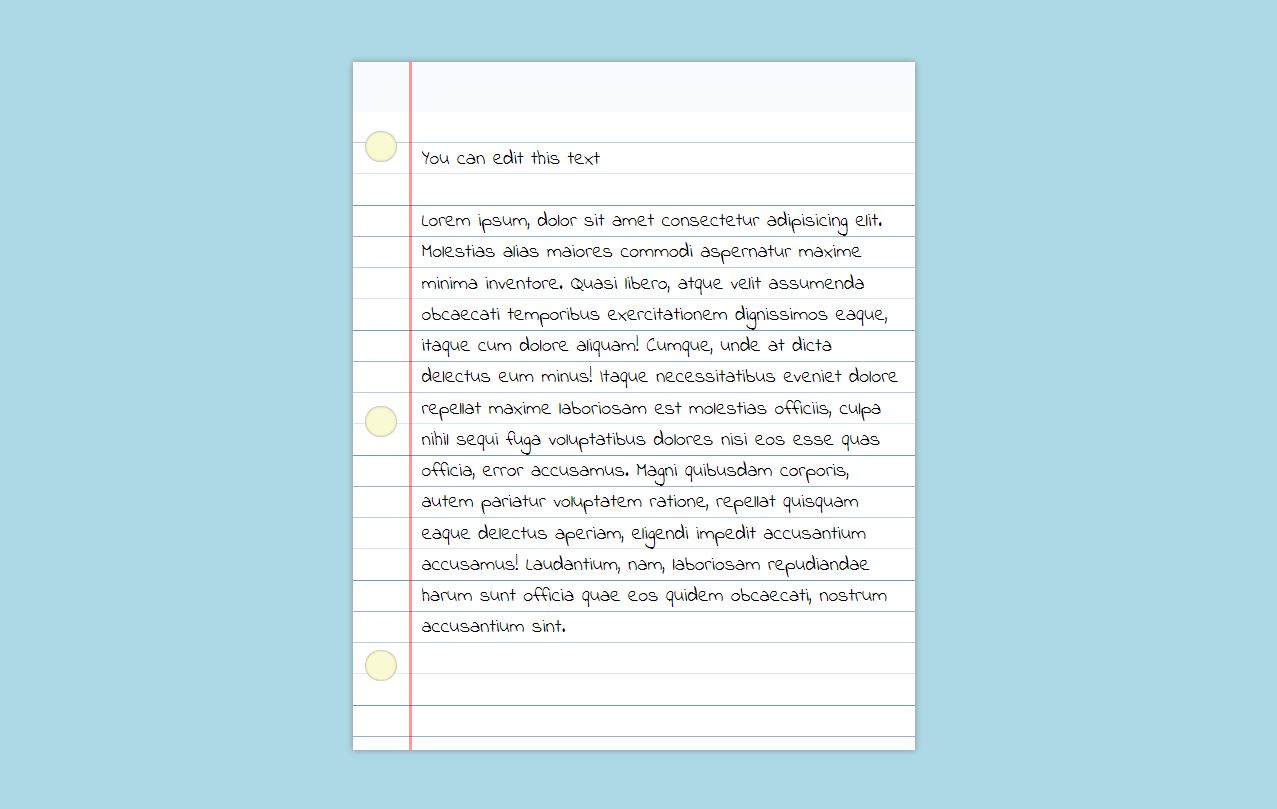 You can edit this text
Lorem ipsum, dolor sit amet consectetur adipisicing elit.
Molestias alias maiores commodi aspernatur maxime
minima inventore. Quasi libero, atque velit assumenda
obcaecati temporibus exercitationem dignissimos eaque,
itaque cum dolore aliquam! Cumque, unde at dicta
delectus eum minus! Itaque necessitatibus eveniet dolore
repellat maxime laboriosam est molestias officiis, culpa
nihil sequi fuga voluptatibus dolores nisi eos esse quas
officia, error accusamus. Magni quibusdam corporis,
autem pariatur voluptatem ratione, repellat quisquam
eaque delectus aperiam, eligendi impedit accusantium
accusamus! Laudantium, nam, laboriosam repudiandae
harum sunt officia quae eos quidem obcaecati, nostrum
accusantium sint.